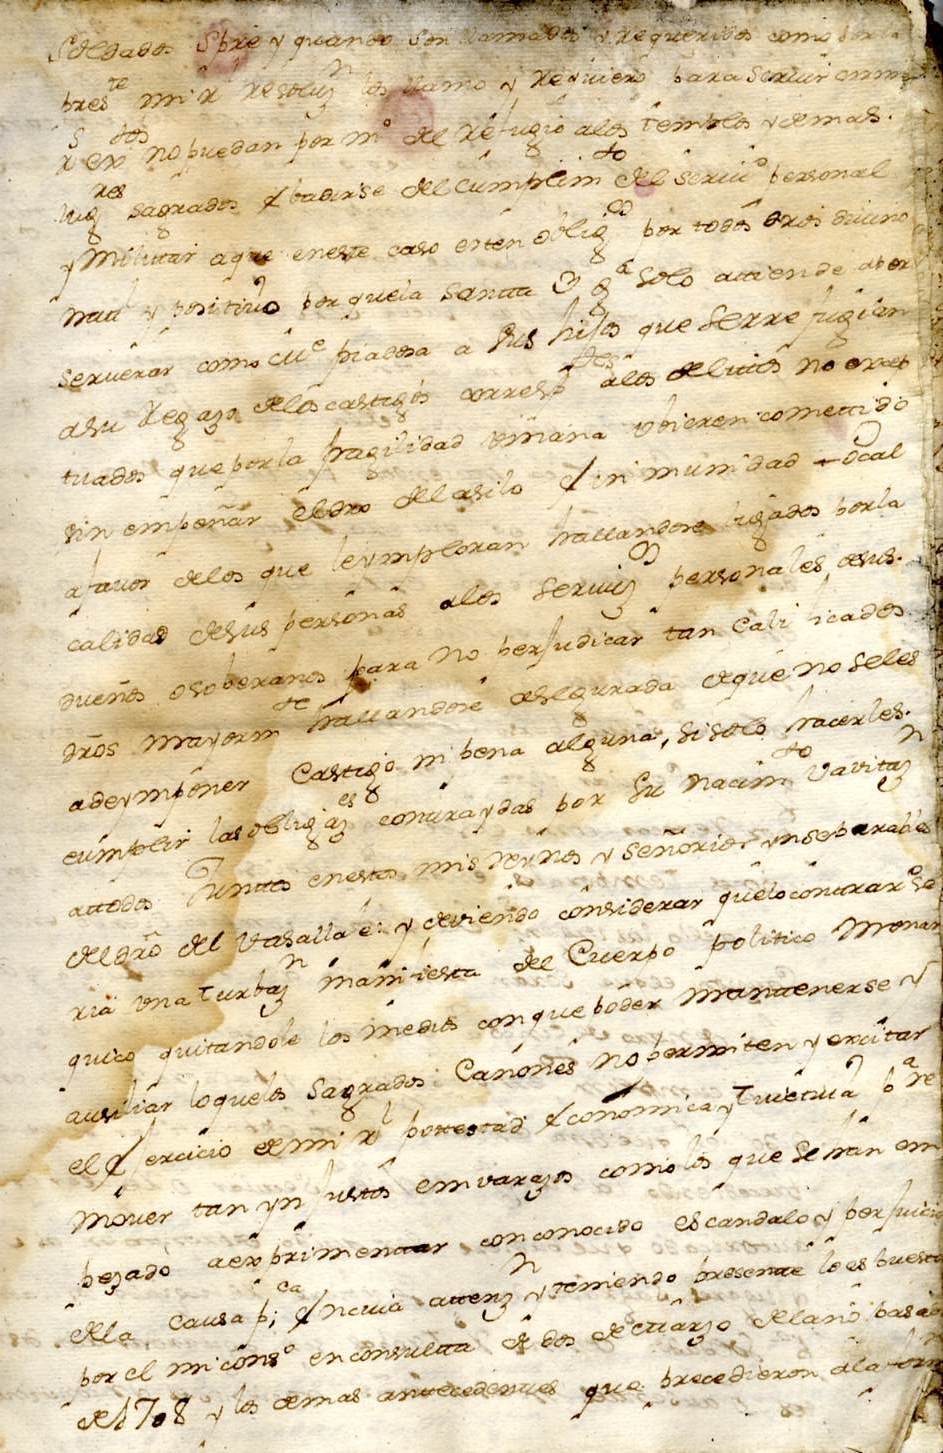 Soldados Spre y quando son llamados y requeridos como por la
pres.te mi R. resoluz.n los llamo y requiero para servir en mis
R.s ex.tos no puedan por m.o del Refugio alos Templos y demas
lug.res sagrados ebadirse del cumplim.to del servi.o personal
y Militar aque eneste caso esten oblig.os por todos dros divino
natt.l y positivo por quela Santta Yg.a solo attiende aber
servirar como piadosa a sus hijos que se rrefugian
asu Regazo delos castigos corresp.tes alos delittos no excep
tuados que por la fragilidad umana ubieren comettido
sin empeñar el dro del asilo e inmunidad Local
afavor delos que le ymploran hallandose ligados por la
calidad desus personas alos servi.os personales desus
dueños o soberanos para no perjudicar tan Calificados
dros mayorm.te hallandose asegurada deque no seles
ade ymponer Castigo ni pena alguna, si solo hacerles
cumplir las obligaz.es contraydas por su nacim.to Vavitaz.n
attodos Juntos enestos mis reynos y señorios ynseparables
del dro del Vasallaje: y deviendo considerar quelo contrar.o se
ria una Turbaz.n manifiesta del Cuerpo Politico Monar
quico quitandole los medios con que poder mantenerse y
ausiliar loquelos Sagrados Canones no permiten y evitar
el exercicio de mi R.l pottestad economica y Tuetiva p.a re
mover tan ynjustos emvarazos como los que se han em
pezado aexprimentar con conocido escandalo y perjuicio
dela causa p.ca en cuia attenz.n y teniendo presente lo es puesto
por el mi cons.o en consultta de dos de Marzo del año pasado
de 1708 y los demas antecedentes que precedieron ala form